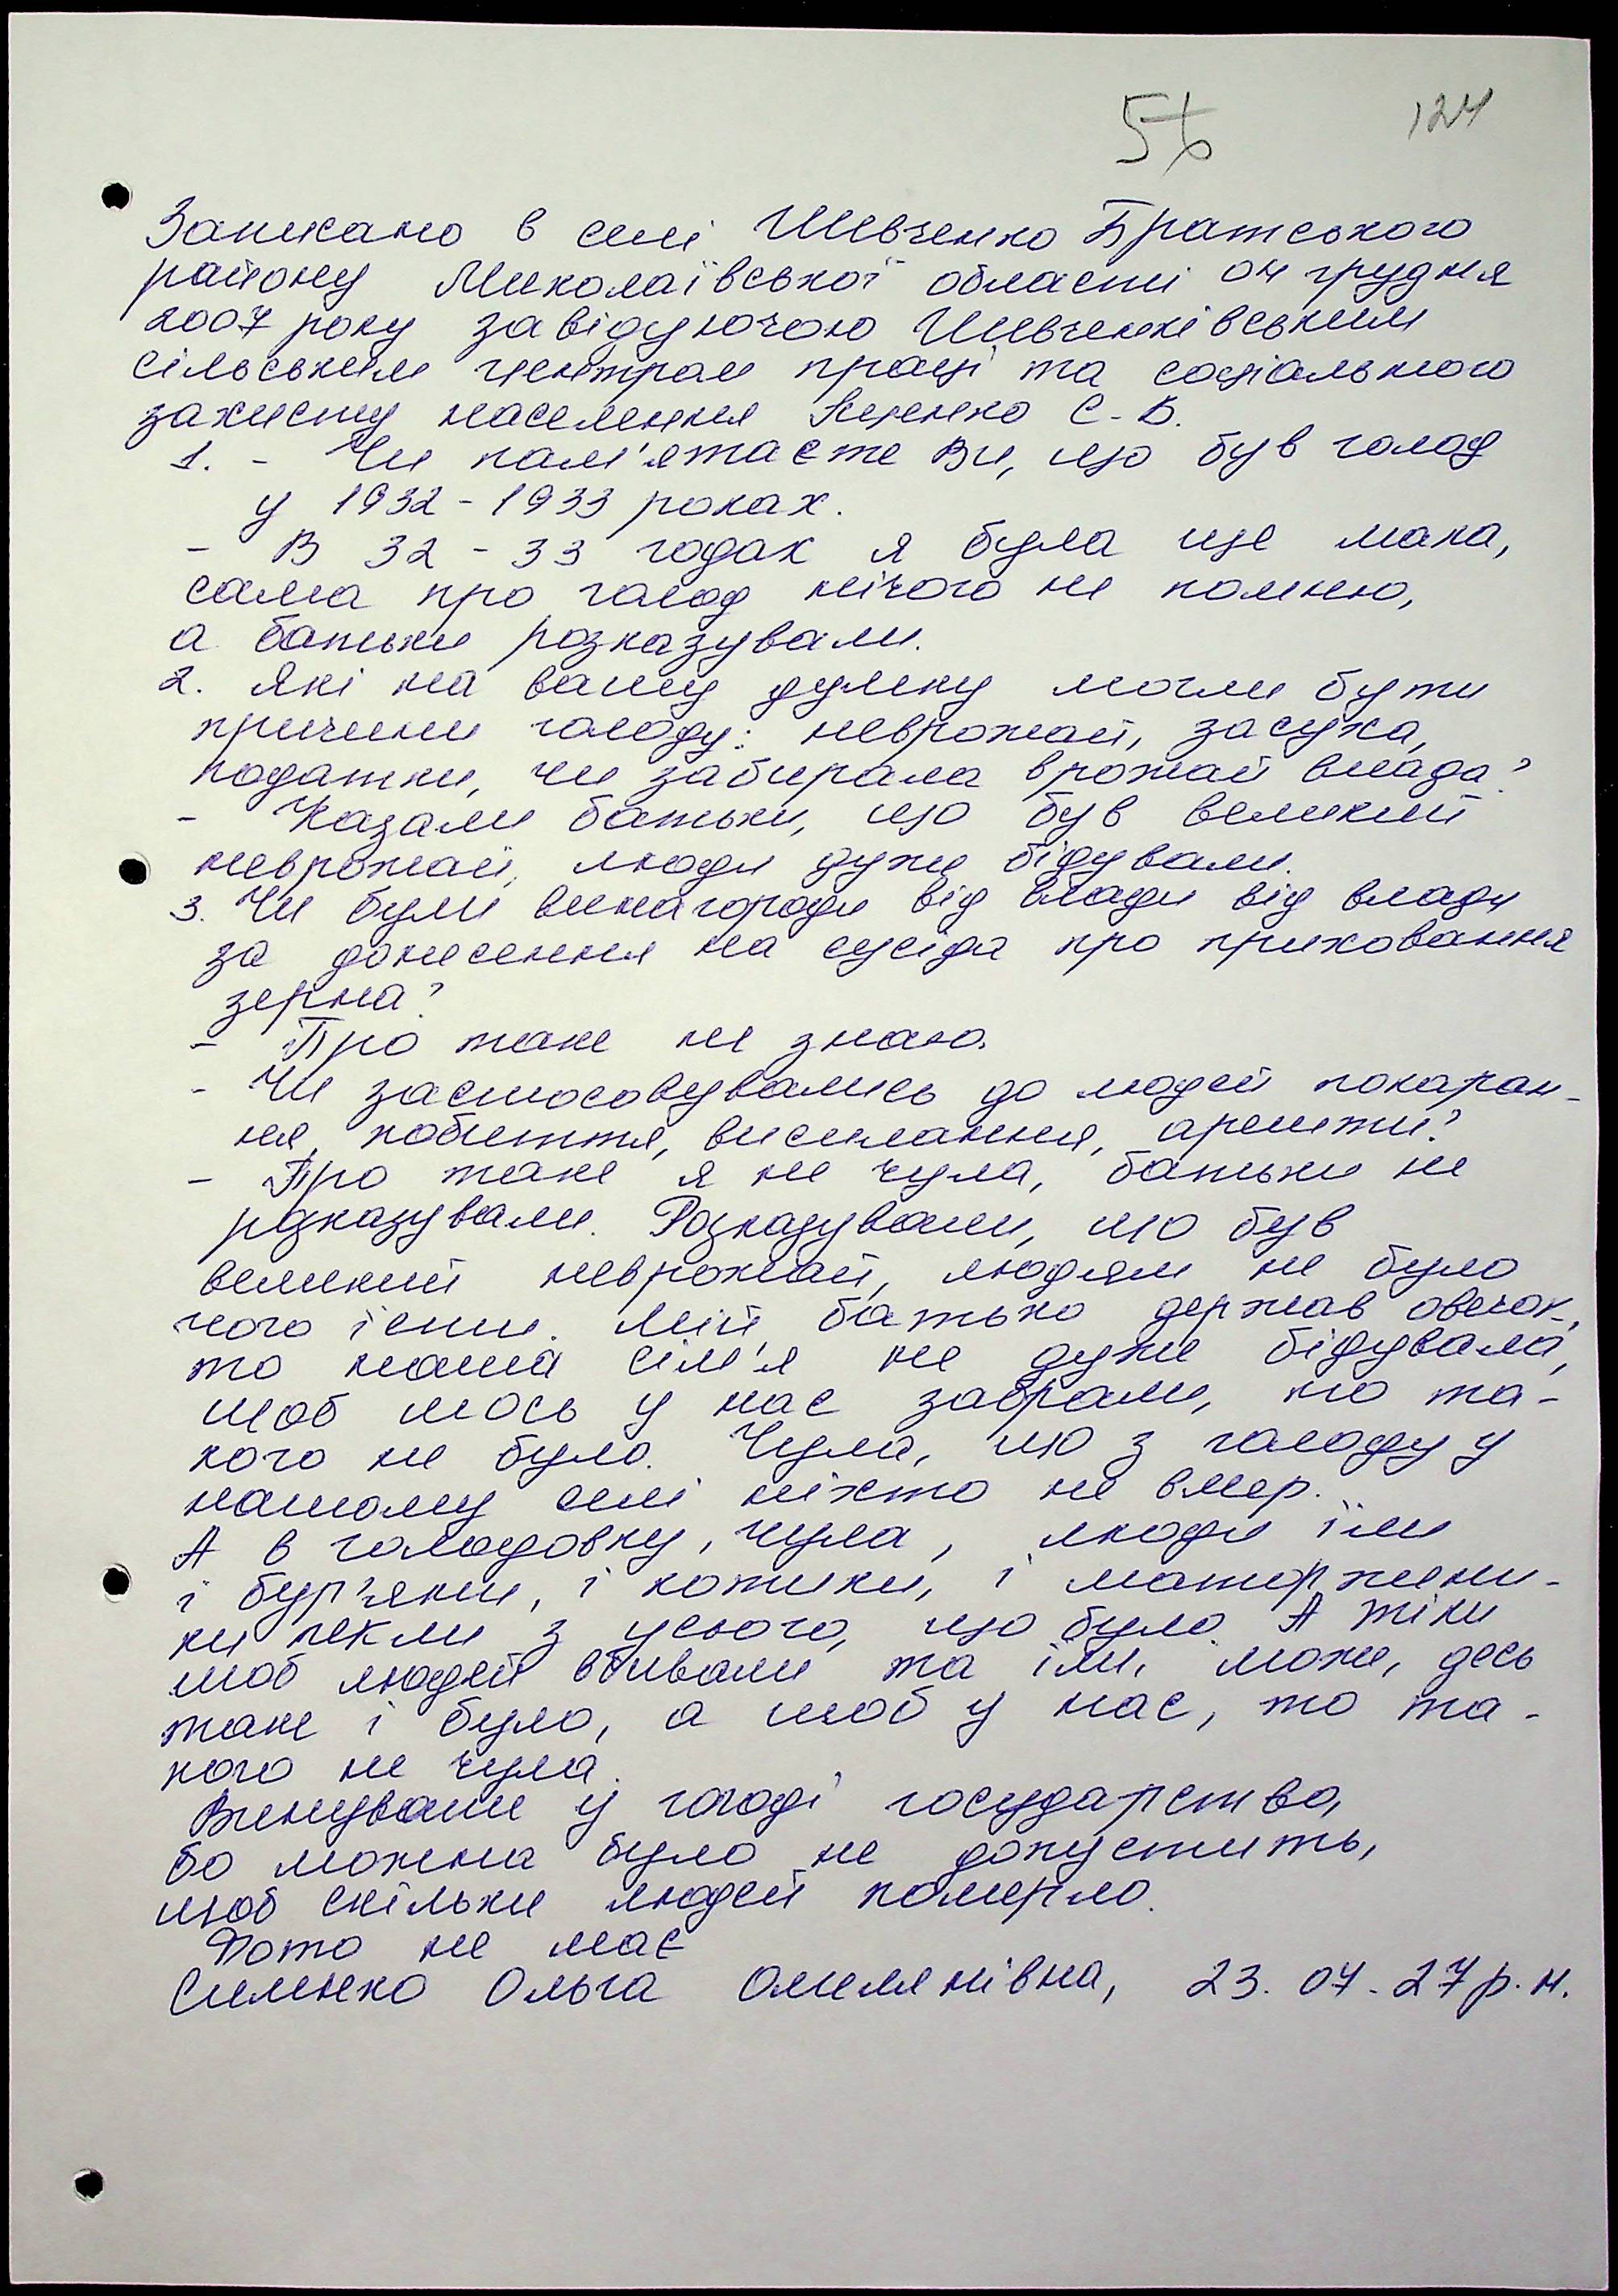 56 124
Записано в селі Шевченко Братського
району Миколаївської області 04 грудня
2007 року завідуючою Шевченківським
сільським центром праці та соціального
захисту населення С. В.
1. - Чи пам'ятаєте Ви, що був голод
у 1932 - 1933 роках.
- В 32 - 33 годах я була ще мала,
сама про голод нічого не помню,
а батьки розказували.
2. Які на вашу думку могли бути
причини голоду: неврожай, засуха,
податки, чи забирала врожай влада?
- Казали батьки, що був великий
неврожай, люди дуже бідували.
3. Чи були винагороди від влади від влади
за донесення на сусіда про приховання
зерна?
- Про таке не знаю.
- Чи застосовувались до людей покаран-
ня, побиття, виселання, арешти?
- Про таке я не чула, батьки не
розказували. Розказували, що був
великий неврожай, людям не було
чого їсти. Мій батько держав овечок,
то наша сім'я не дуже бідувала,
щоб щось у нас забрали, то та-
кого не було. Чула, що з голоду у
нашому селі ніхто не вмер.
А в голодовку, чула, люди їли
і бур'яни, і котики, і маторжени-
ки пекли з усього, що було. А тіки
щоб людей вбивали та їли, може, десь
таке і було, а щоб у нас, то та-
кого не чула.
Винували у голоді государство,
бо можна було не допустить,
щоб скільки людей померло.
Фото не має
Сименко Ольга Омелянівна, 23. 07. 27 р. н.